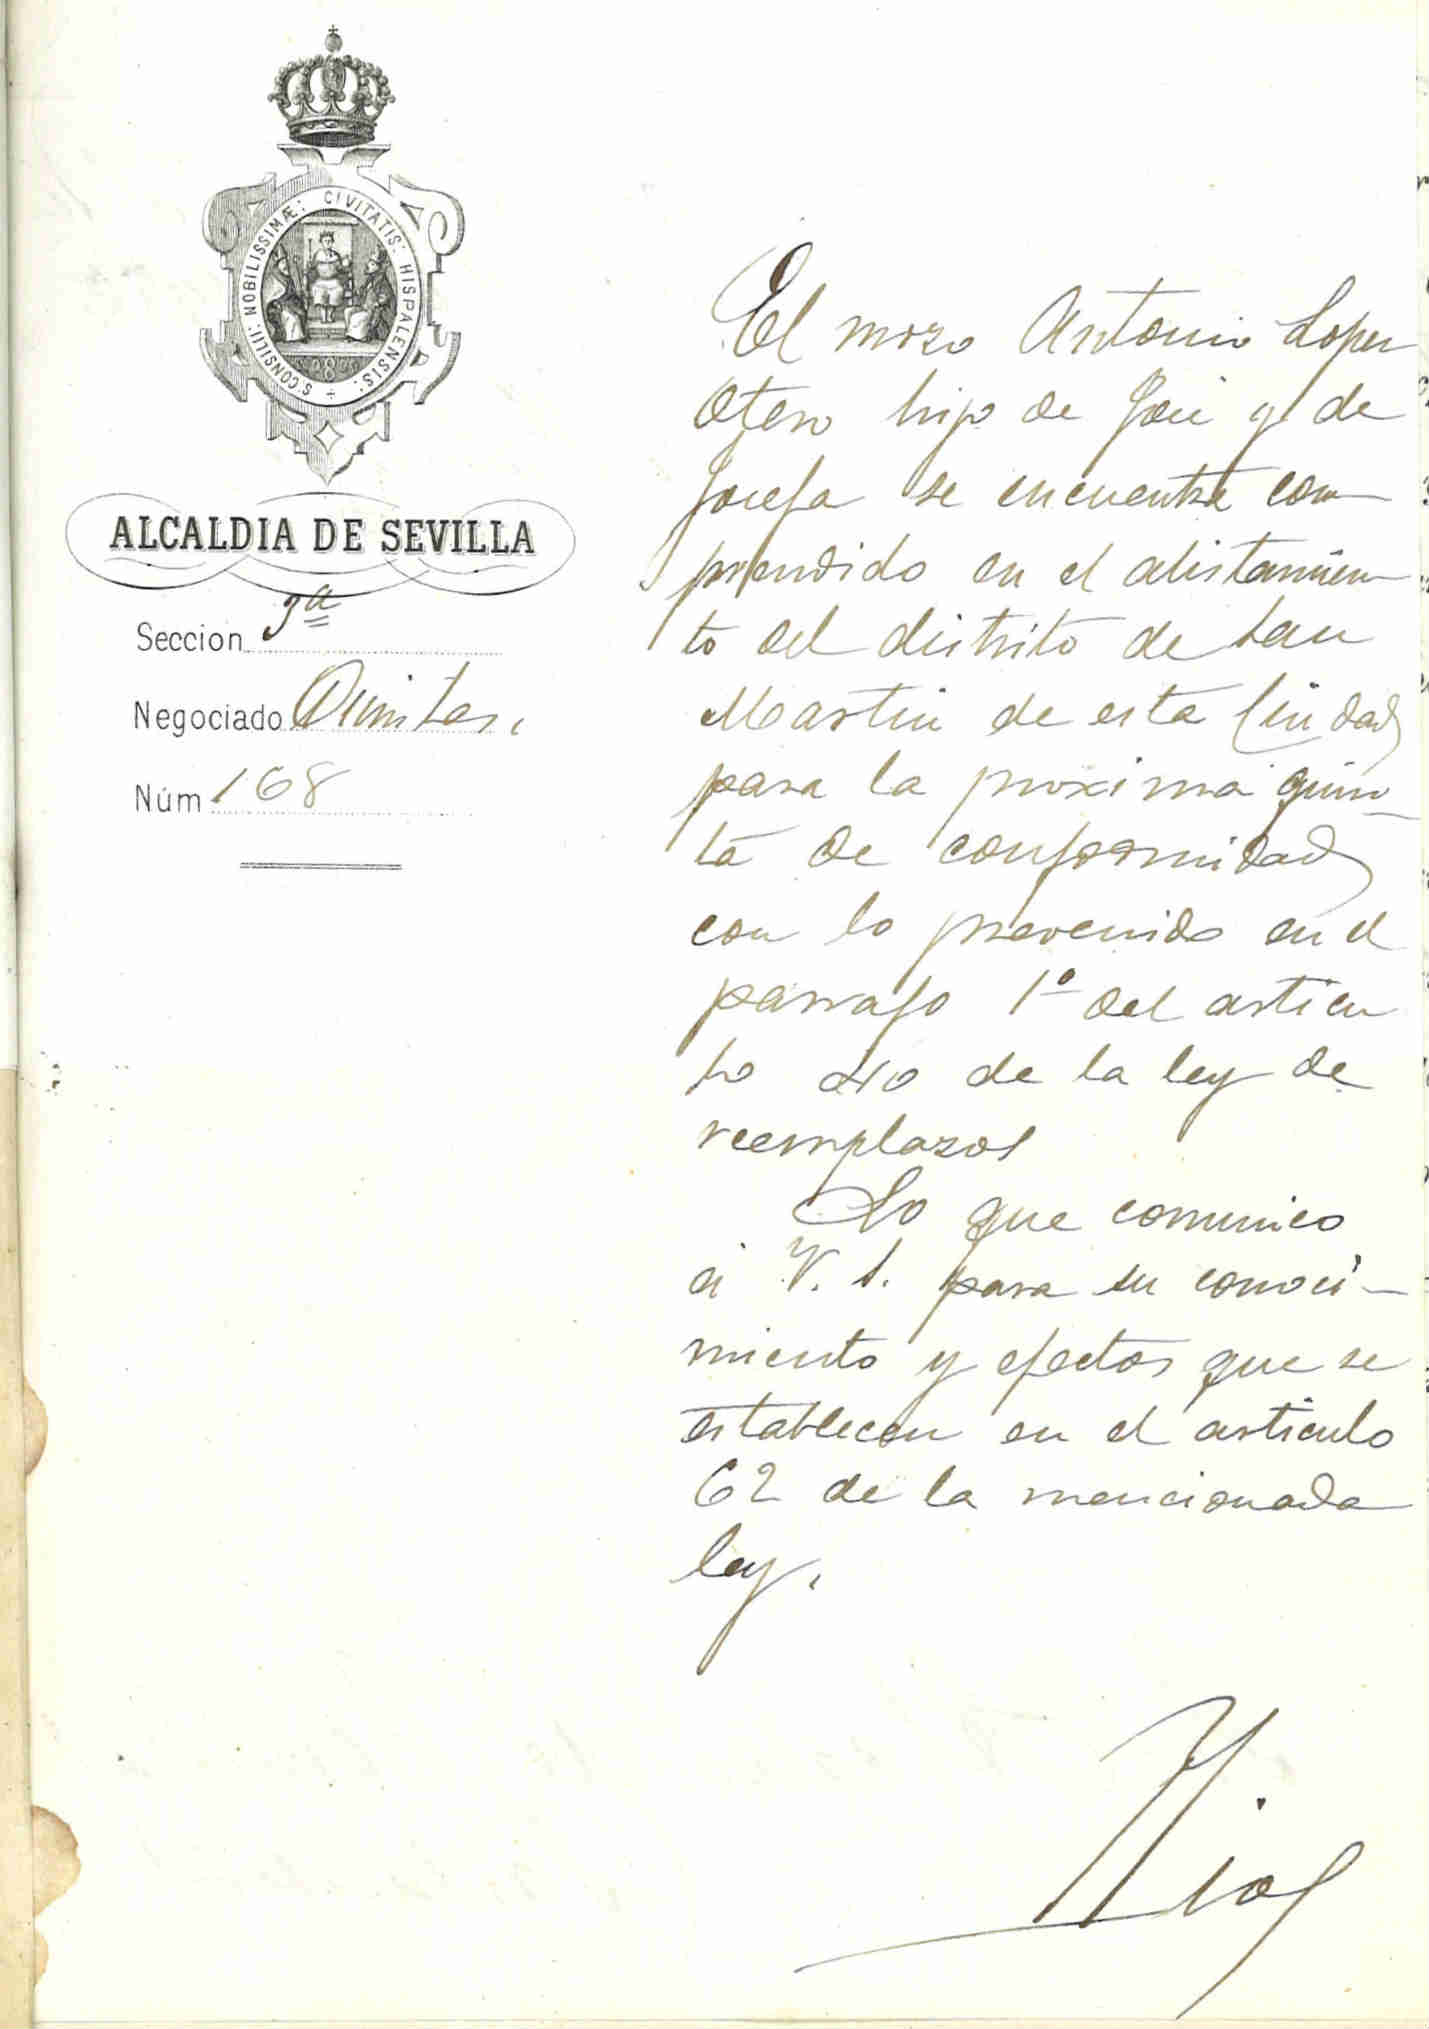 S: CONSILII: NOBILISSIMÆ: CIVITATIS: HISPALENSIS:
ALCALDIA DE SEVILLA
Seccion 3ª
Negociado Quintas.
Núm 168
El mozo Antonio Lopez
Otero hijo de José y de
Josefa se encuentra com
prendido en el alistamien
to del distrito de San
Martin de esta Ciudad
para la proxima quin-
ta de conformidad
con lo prevenido en el
parrafo 1º del articu
lo 40 de la ley de
reemplazos
Lo que comunico
á V. S. para su conoci-
miento y efectos que se
establecen en el articulo
62 de la mencionada
ley.
Dios